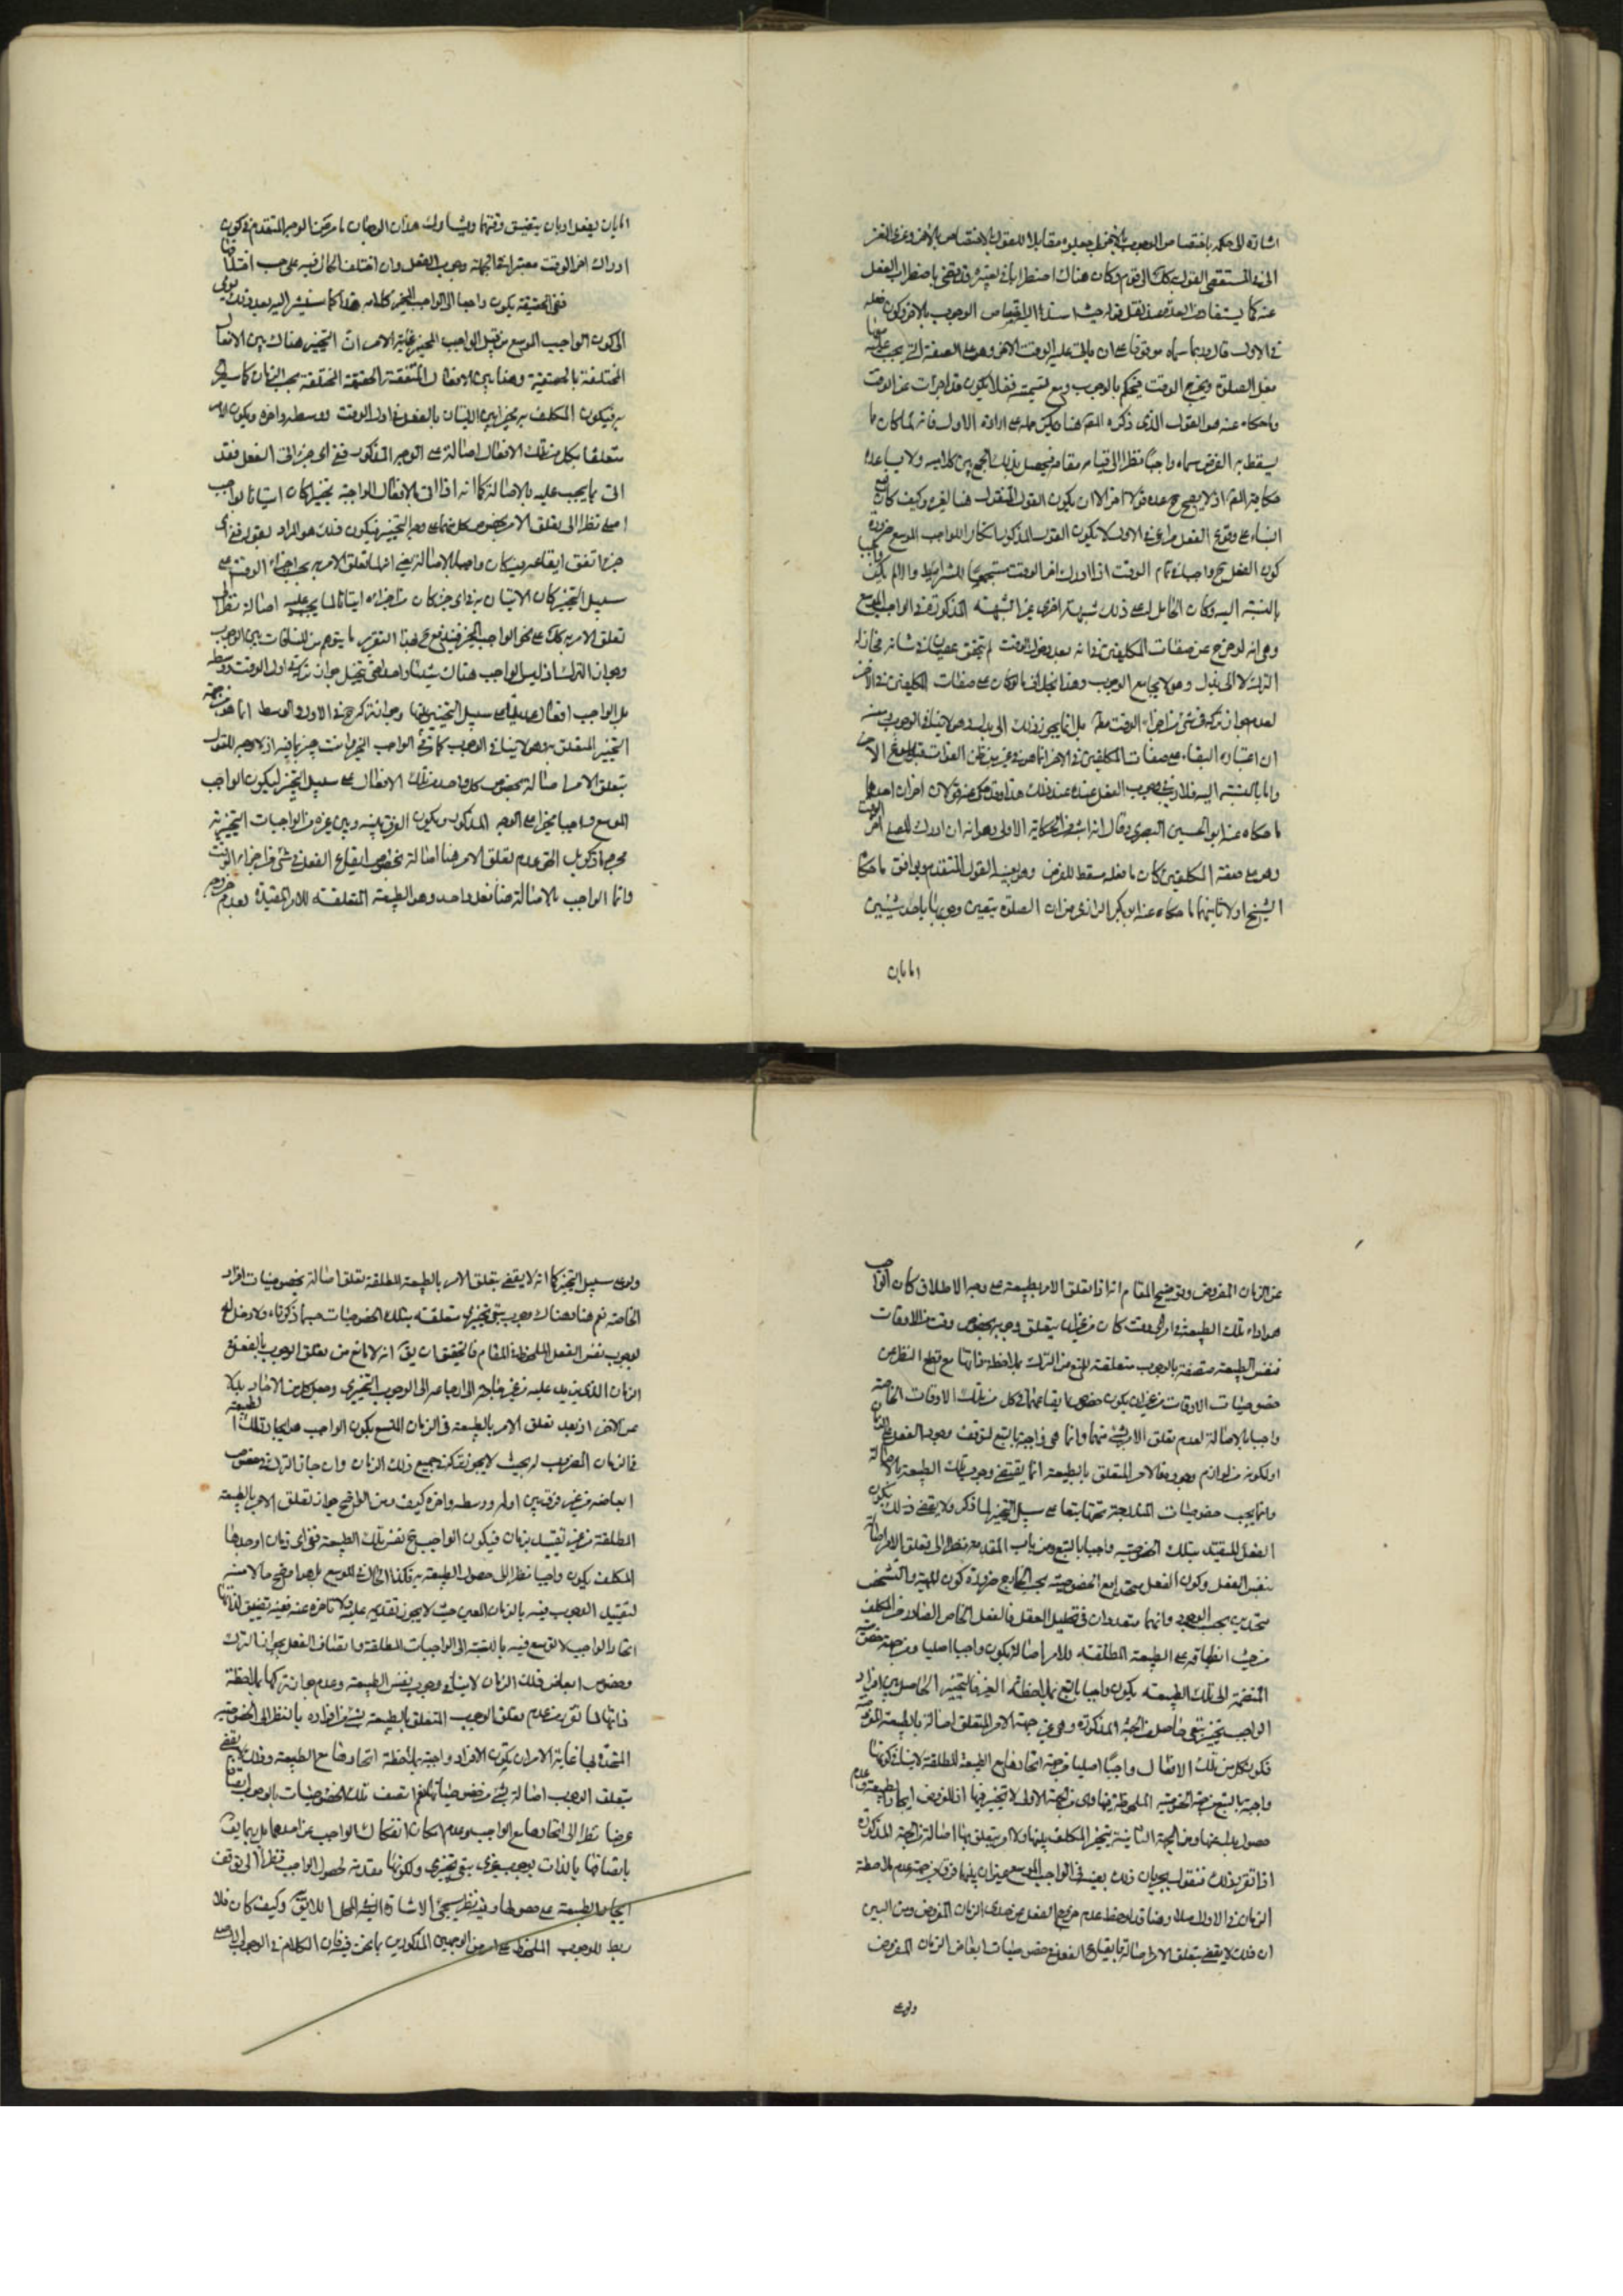 اشارة الى حكمه باختصاص الوجوب بالاخر بل جعلوه مقابلا للقول بالاختصاص بالاخر وعزى
الى القول بذلك الى قوم وكان هناك اضطرابا في تعيينه
عنه كما يستفاد من العدة عند نقل قوله حيث اسند اليه اختصاص الوجوب بالاخر وكون فعله
في الاول قال ربما سماه موقوفا على ان ياتى عليه الوقت الاخر وهو على الصفة التي يجب عليه معها
فعل الصلوة ويخرج الوقت فيحكم بالوجوب
وما حكاه عنه هو القول الذى ذكره المص هنا ويمكن حمله على ارادة الاول فانه لما كان ما
يسقط به الفرض سماه واجبا نظرا الى قيامه مقامه فيحصل بذلك الجمع بين كلاميه ولا يساعده
حكاية المص اذ لا يصح ح عده قولا اخر الا ان يكون القول المنقول هنا لغيره وكيف كان
البناء على وقوع الفعل مراعى في الاول لا يكون القول المذكور انكارا للواجب الموسع ضرورة
كون الفعل ح واجبا في تمام الوقت اذا ادرك اخر الوقت مستجمعا للشرايط والا لم يكن
بالنسبة اليه وكان الحامل له على ذلك شبهة اخرى غير الشبهة المذكورة في الواجب الموسع
وهى انه لو خرج عن صفات المكلفين
الترك لا الى بدل وهو لا يجامع الوجوب وهذا بخلاف ما لو كان على صفات المكلفين في الاخر
لعدم جواز تركه في شئ من اجزاء الوقت مط بل انما يجوز ذلك الى بدل وهو لا ينافي الوجوب
ان اعتباره البقاء على صفات المكلفين في الاخر انما هو في غير من ظن الفوات قبل بلوغ الاخر
واما بالنسبة اليه فلا ريب في وجوب الفعل عنده عند ذلك هذا وقد حكى عنه قولان اخران احدهما
ما حكاه عنه ابو الحسين البصرى وقال انه اشبه من الحكاية الاولى وهو انه ان ادرك المصلى اخر الوقت
وهو على صفة المكلفين كان ما فعله مسقطا للفرض وهو بعينه القول المتقدم ويوافق ما حكاه
الشيخ اولا ثانيهما ما حكاه عنه ابو بكر الرازى من ان الصلوة يتعين وجوبها باحد شيئين
اما بان
اما بان يفعل او بان يتضيق وقتها ويشارك هذان الوجهان ما مر من الوجه المتقدم في كون
ادراك اخر الوقت معتبرا وجوب الفعل وان اختلف الحال فيه على حسب اختلافها
ففى الحقيقة يكون راجعا الى الواجب المخير كلامه هذا كما سنشير اليه بعد ذلك يومى
الى كون الواجب الموسع من قبيل الواجب المخير غاية الامر ان التخيير هناك بين الافعال
المختلفة بالحقيقة وهنا بين الافعال المتفقة الحقيقة المختلفة بحسب الزمان كما
فيكون المكلف مخيرا بين الاتيان بالفعل في اول الوقت ووسطه واخره ويكون الامر
متعلقا بكل من تلك الافعال اصالة على الوجه المذكور ففى اى جزء اتى الفعل فقد
اتى بما يجب عليه بالاصالة كما انه اذا اتى بالافعال الواجبة تخييرا كان اتيانا بواجب
اصلى نظرا الى تعلق الامر بخصوص كل منها على وجه التخيير فيكون ذلك هو المراد بقوله ففى اى
جزء اتفق ايقاعه فيه كان واجبا بالاصالة يعنى انه لما تعلق الامر به بحسب اجزاء الوقت على
سبيل التخيير كان الاتيان به في اى جزء كان من اجزائه اتيانا لما يجب عليه اصالة نظرا الى
تعلق الامر بذلك على نحو الواجب المخير فيندفع بهذا التقرير ما يتوهم من المنافات بين الوجوب
وجواز الترك اذ ليس الواجب هناك شيئا واحدا حتى يتخيل جواز تركه في اول الوقت ووسطه
بل الواجب افعال عديدة على سبيل التخيير بينها وجواز تركه ح في الاول والوسط انما هو من جهة
التخيير المتعلق به وهو لا ينافى الوجوب كما في الواجب المخير وانت خبير بما فيه اذ لا وجه للقول
بتعلق الامر اصالة بخصوص كل واحد من تلك الافعال على سبيل التخيير ليكون الواجب
الموسع واجبا مخيرا على الوجه المذكور ويكون الفرق بينه وبين غيره من الواجبات التخييرية
مجرد ما ذكر بل الحق عدم تعلق الامر هنا اصالة بخصوص ايقاع الفعل في شئ من اجزاء الوقت
وانما الواجب بالاصالة هنا فعل واحد وهو الطبيعة المتعلقة للامر المقيدة بعدم خروجه
عن الزمان المفروض وتوضيح المقام انه اذا تعلق الامر بطبيعة على وجه الاطلاق كان الواجب
هو اداء تلك الطبيعة في اى وقت كان من غير ان يتعلق وجوبه بخصوص وقت من الاوقات
فنفس الطبيعة متصفة بالوجوب متعلقة للمنع من الترك بملاحظة ذاتها مع قطع النظر عن
خصوصيات الاوقات من غير ان يكون خصوص ايقاعها في كل من تلك الاوقات الخاصة
واجبا بالاصالة لعدم تعلق الامر بشئ منها وانما هى واجبة بالتبع لتوقف وجود الفعل على الزمان
او لكونه من لوازم وجوده فالامر المتعلق بالطبيعة انما يقتضى وجوب تلك الطبيعة بالاصالة
وانما يجب خصوصيات المندرجة تحتها تبعا على سبيل التخيير لما ذكر ولا يقتضى ذلك بكون
الفعل المقيد بتلك الخصوصية واجبا بالتبع ومن باب المقدمة نظرا الى تعلق الامر اصالة
بنفس الفعل وكون الفعل متحدا مع الخصوصية بحسب الخارج ضرورة كون المهية والتشخص
متحدين بحسب الوجود وانهما متعددان في تحليل العقل فالفعل الخاص الصادر من المكلف
من حيث انطباقه على الطبيعة المطلقة والامر اصالة يكون واجبا اصليا ومن جهة خصوصيته
المنضمة الى تلك الطبيعة يكون واجبا بالتبع بملاحظة الغير فالتخيير الحاصل بين افراد
الواجب تخيير تبعى حاصل من الجهة المذكورة وهى غير جهة الامر المتعلق اصالة بالطبيعة
فكون كل من تلك الافعال واجبا اصليا من جهة اتحادها مع الطبيعة المطلقة لا ينافى كونها
واجبة بالتبع من جهة الخصوصية الملحوظة فيها وهى من الجهة الاولى لا تخيير فيها اذ المفروض ايجاد الطبيعة وعدم
حصول بدل عنها ومن الجهة الثانية يتخير المكلف بينها ولا امر يتعلق بها اصالة من الجهة المذكورة
اذا تقرر ذلك فنقول بجريان ذلك بعينه في الواجب الموسع غير ان بينهما فرقا من جهة عدم ملاحظة
الزمان في الاول اصلا وهنا قد لوحظ عدم خروج الفعل عن حدى الزمان المفروض ومن البين
ان ذلك لا يقضى بتعلق الامر اصالة بايقاع الفعل في خصوصيات ابعاض الزمان المفروض
ولو على
ولو على سبيل التخيير كما انه لا يقضى بتعلق الامر بالطبيعة المطلقة تعلق اصالة بخصوصيات افراده
الخاصة نعم هنا وهناك وجوب تبعى تخييرى متعلقة بتلك الخصوصيات حسبما ذكرناه ولا دخل له
بوجوب نفس الفعل الملحوظ في المقام فالتحقيق ان يق انه لا مانع من تعلق الوجوب بالفعل في
الزمان الذى يزيد عليه من غير حاجة الى ارجاعه الى الوجوب التخييرى وجعل كل من الاحاد بدلا
عن الاخر اذ بعد تعلق الامر بالطبيعة في الزمان المتسع يكون الواجب هو ايجاد تلك الطبيعة
في الزمان المضروب له بحيث لا يجوز تركه في جميع ذلك الزمان وان جاز تركه في خصوص
ابعاضه من غير فرق بين اوله ووسطه واخره كيف ومن الواضح جواز تعلق الامر بالطبيعة
المطلقة من غير تقييد بزمان فيكون الواجب ح نفس تلك الطبيعة ففى اى زمان اوجدها
المكلف يكون واجبا نظرا الى حصول الطبيعة به فكذا الحال في الموسع بل هو اوضح حالا منه
لتقييد الوجوب فيه بالزمان المعين حيث لا يجوز تقديمه عليه ولا تاخيره عنه ففيه تضييق
الواجب لا توسع فيه بالنسبة الى الواجبات المطلقة واتصاف الفعل بجواز الترك
وخصوص ابعاض ذلك الزمان لا ينافى وجوب نفس الطبيعة وعدم جواز تركها بملاحظة
ذاتها لما تقرر من عدم تعلق الوجوب المتعلق بالطبيعة بشئ من افراده بالنظر الى الخصوصية
المتحدة بها غاية الامر ان يكون الافراد واجبة بملاحظة اتحادها مع الطبيعة وذلك لا يقضى
بتعلق الوجوب اصالة بشئ من خصوصياتها نعم اتصف تلك الخصوصيات بالوجوب اتصافا
عرضيا نظرا الى اتحادها مع الواجب وعدم امكان انفكاك الواجب عن احدها بل ربما يق
باتصافها بالذات بوجوب غيرى تبعى تخييرى ولكونها مقدمة لحصول الواجب نظرا الى توقف
ايجاد الطبيعة على حصولها وفيه نظر سيجئ الاشارة اليه في المحل اللايق وكيف كان فلا
ربط للوجوب الملحوظ على احد من الوجهين المذكورين بما نحن فيه فان الكلام في الوجوب الاصلى